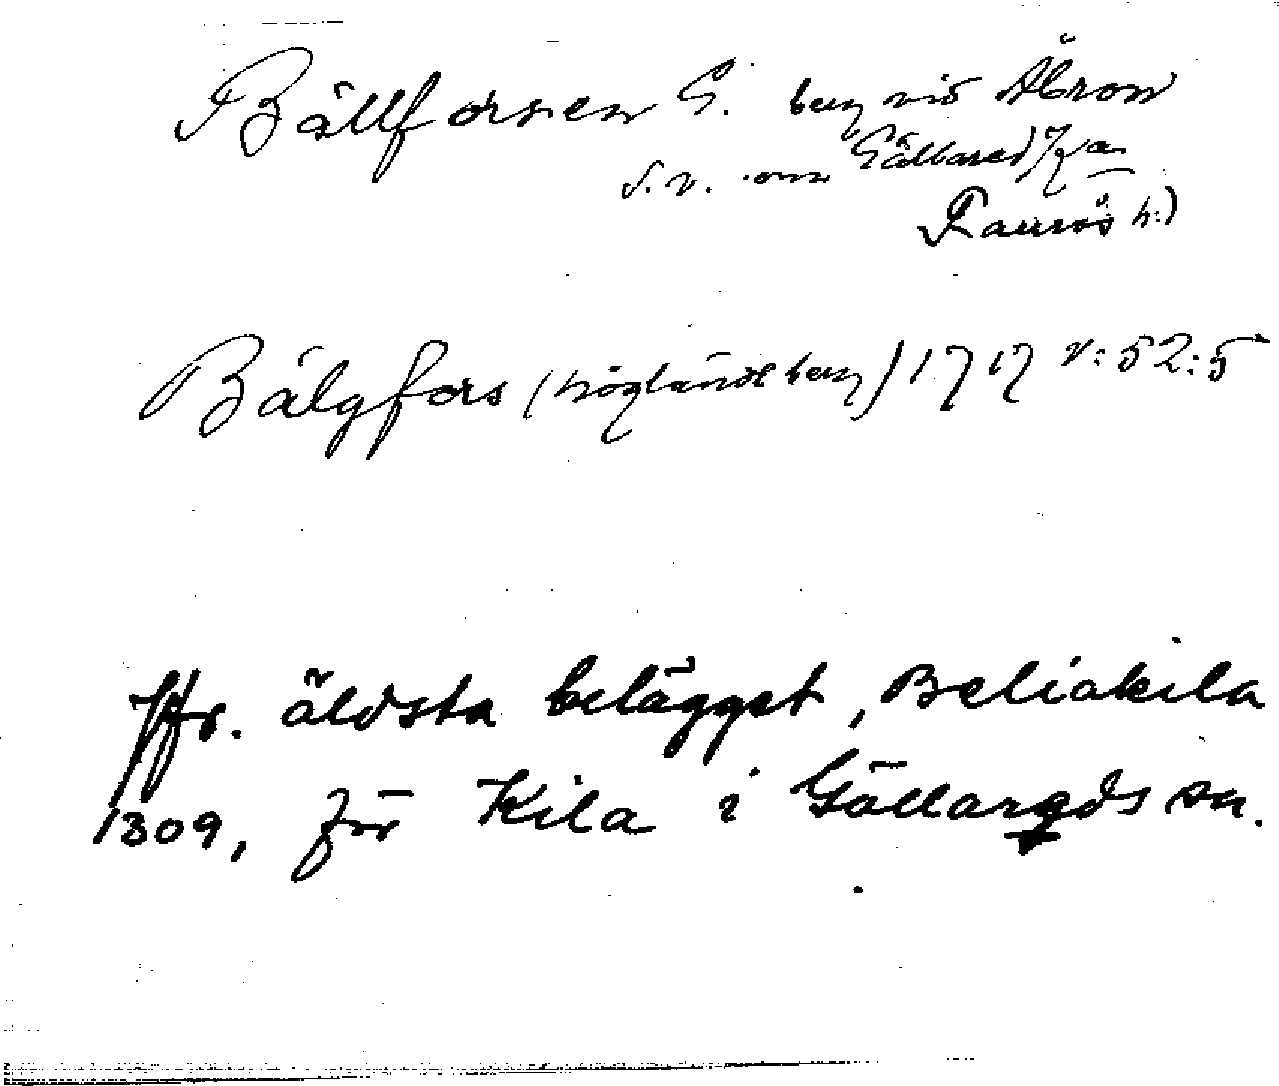 Bällforsen G. berg vid Ätran
s.v. om Gällared
Faurås h.)
Bälgfors (högländt berg) 1717 v: 52:5
Jfr. äldsta belägget, Beliakila
1309, för Kila i Gällareds sn.